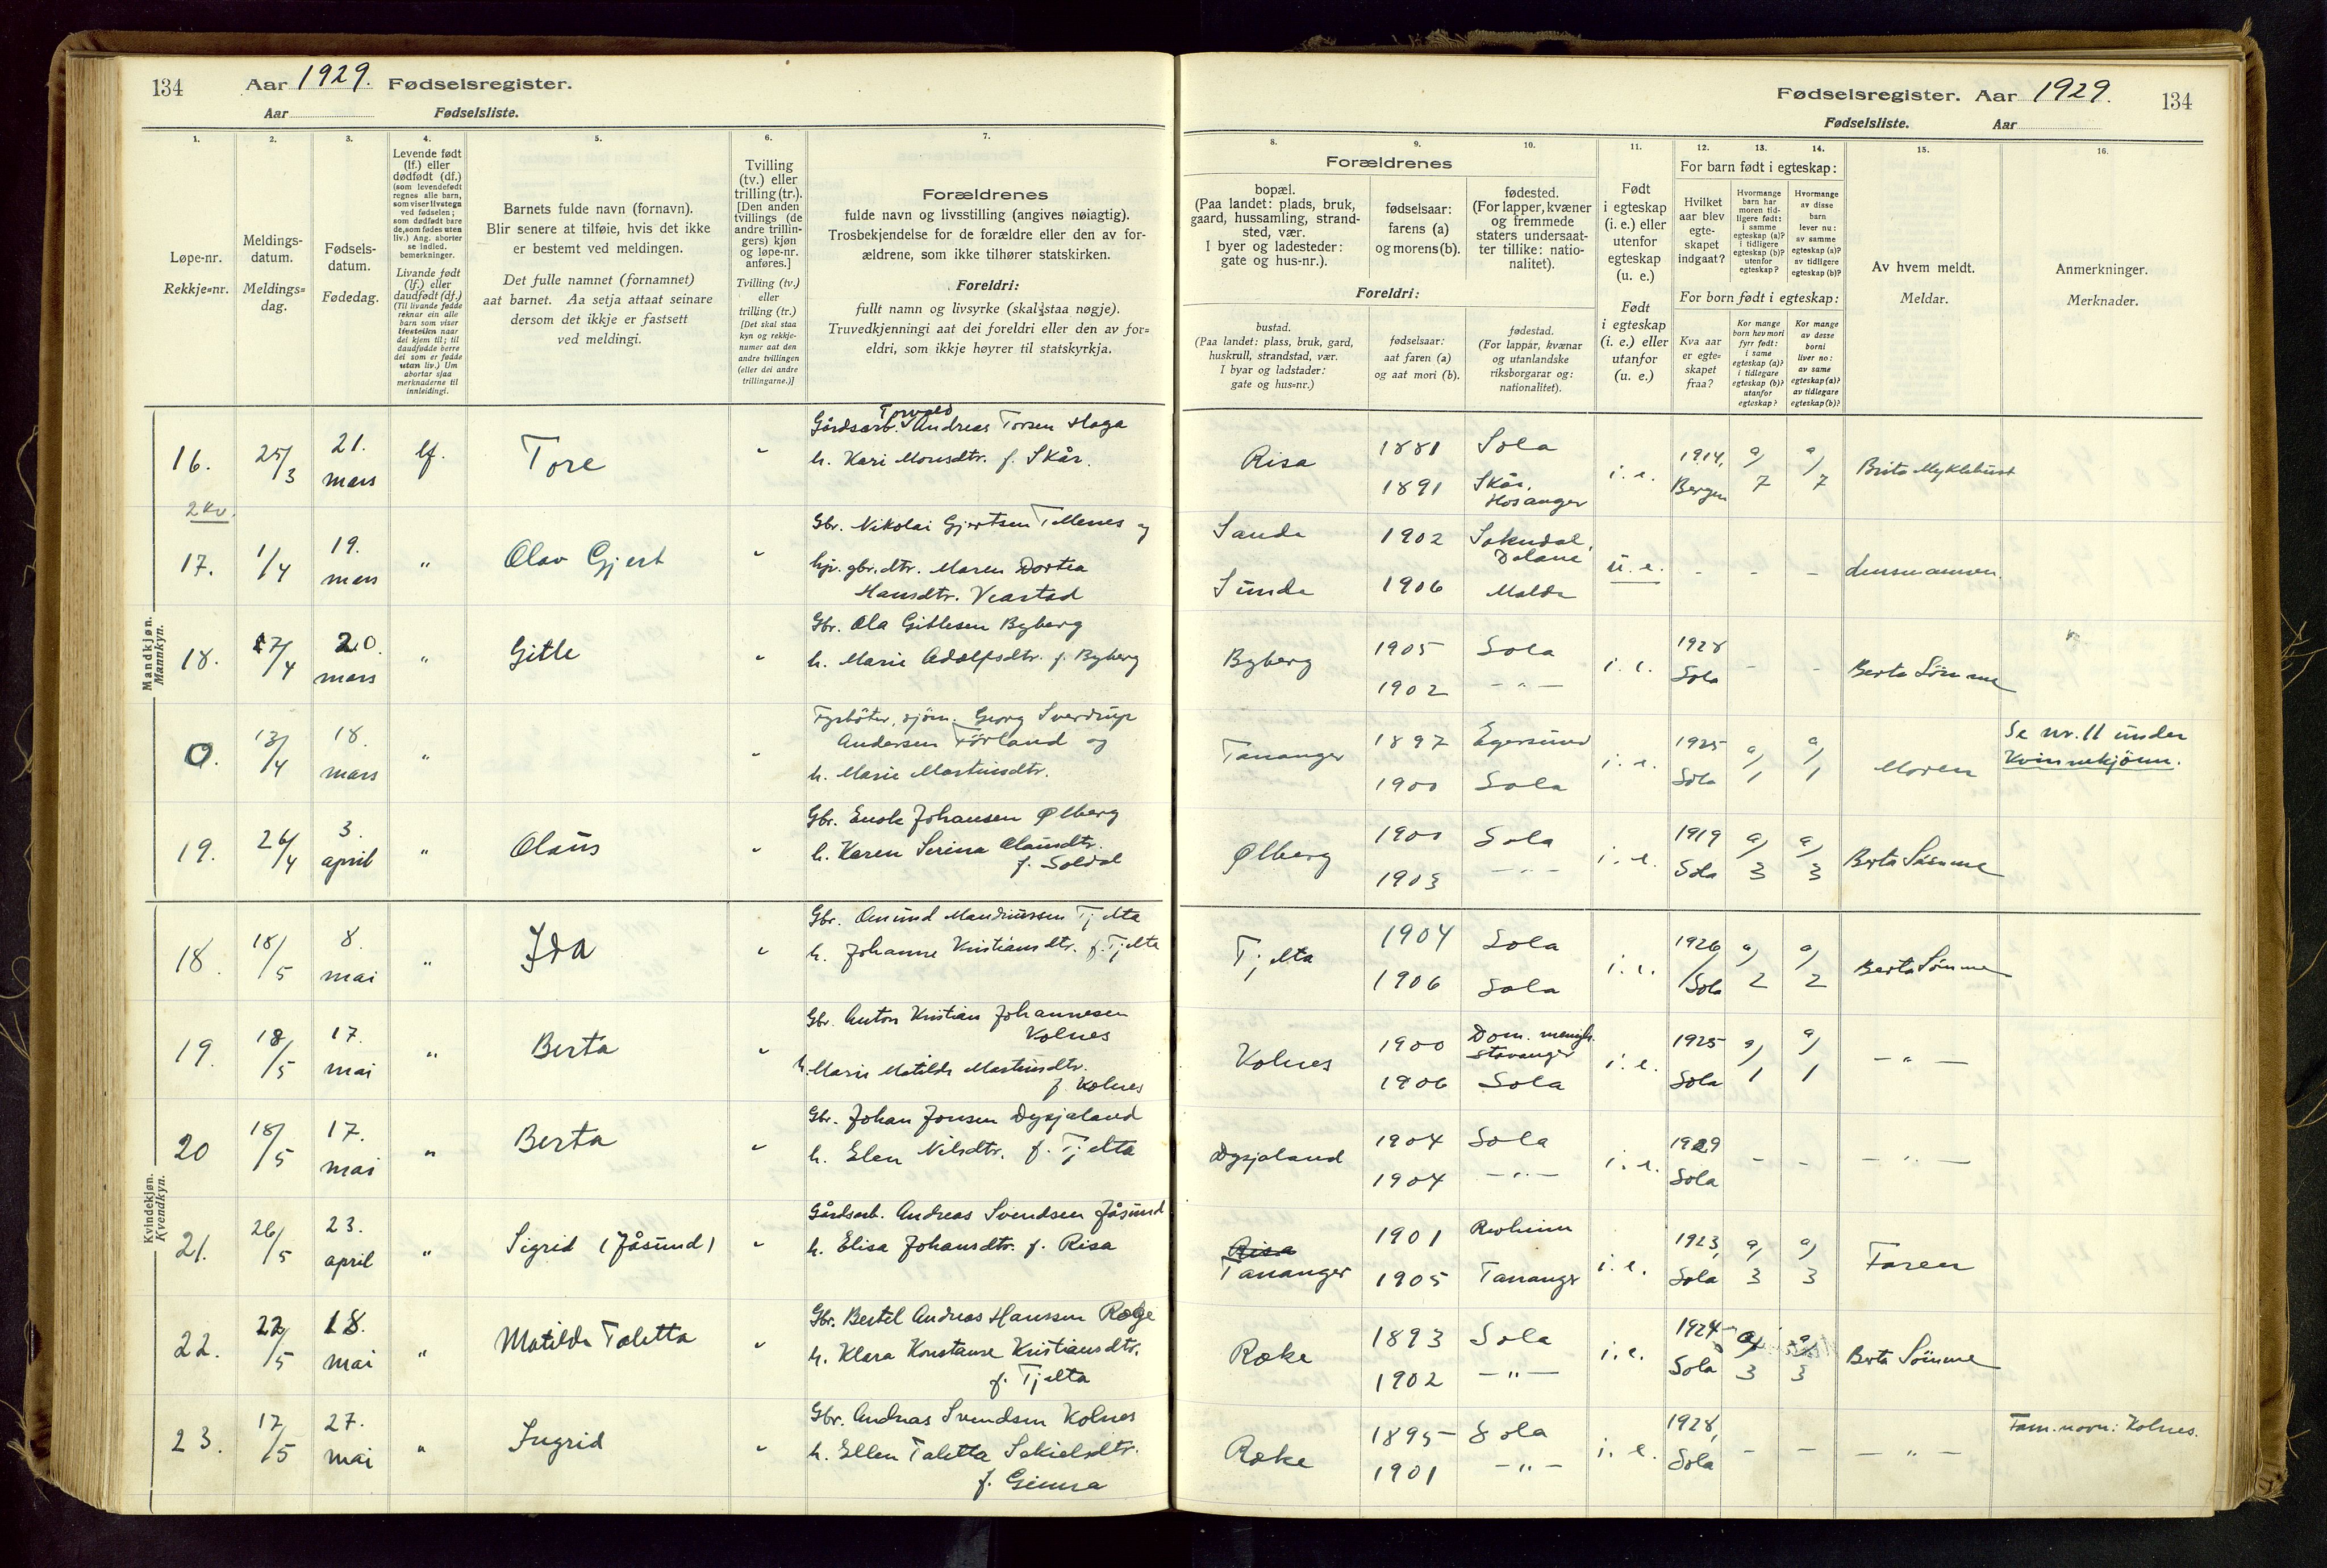 134 Aar 1929. Fødselsregister.
Aar Fødselsliste.
1. 2. 3. 4. 5. 6. 7.
Løpe-nr.
Rekkje=nr.
Meldings-
datum.
Meldings=
dag.
Fødsels-
datum.
Fødedag.
Levende født
(lf.) eller
dødfødt (df.)
(som levendefødt
regnes alle barn,
som viser livstegn
ved fødselen;
som dødfødt bare
de, som fødes uten
liv.) Ang. aborter
se indled.
bemerkninger.
Livande fødd
(lf.) eller
daudfødt (df.)
(Til livande fødde
reknar ein alle
barn som viser
livsteikn naar
dei kjem til; til
daudfødde berre
dei som er fødde
utan liv.) Um
abortar sjaa
merknaderne til
innleidingi.
Barnets fulde navn (fornavn).
Blir senere at tilføie, hvis det ikke
er bestemt ved meldingen.
Det fulle namnet (fornamnet)
aat barnet. Aa setja attaat seinare
dersom det ikkje er fastsett
ved meldingi.
Tvilling
(tv.) eller
trilling (tr.).
[Den anden
tvillings (de
andre trillin-
gers) kjøn
og løpe-nr.
anføres.]
Tvilling (tv.)
eller
trilling (tr.)
[Det skal staa
kyn og rekkje-
numer aat den
andre tvillingen
(eller dei andre
trillingarne.)]
Forældrenes
fulde navn og livsstilling (angives nøiagtig).
Trosbekjendelse for de forældre eller den av for-
ældrene, som ikke tilhører statskirken.
Foreldri:
fullt namn og livsyrke (skal staa nøgje).
Truvedkjenningi aat dei foreldri eller den av for=
eldri, som ikkje høyrer til statskyrkja.
Mandkjøn.
Mannkyn.
16. 25/3 21. mars lf. Tore "
Gårdsarb. Torvald Andreas Torsen Haga
h. Kari Monsdtr. f. Skår.
2 kv.
17. 1/4 19. mars " Olav Gjert "
Gbr. Nikolai Gjertsen Tellenes og
hjv. gbr.dtr. Maren Dortea
Hansdtr. Vearstad
18. 17/4 20. mars " Gitle "
Gbr. Ola Gitlesen Byberg
h. Marie Adolfsdtr. f. Byberg
0. 13/4 18. mars " "
Fyrbøter, sjøm. Georg Sverdrup
Andersen Førland og
h. Marie Martinsdtr.
19. 26/4 3. april " Olaus "
Gbr. Enok Johansen Ølberg
h. Karen Serina Olausdtr.
f. Soldal
Kvindekjøn.
Kvendkyn.
18. 18/5 8. mai " Ida "
Gbr. Omund Mandriussen Tjelta
h. Johanne Kristiansdtr. f. Tjelta
19. 18/5 17. mai " Berta "
Gbr. Anton Kristian Johannesen
Kolnes
h. Marie Matilde Martinsdtr.
f. Kolnes
20 18/5 17. mai " Berta "
Gbr. Johan Jonsen Dysjaland
h. Elen Nilsdtr. f. Tjelta
21. 26/5 23. april " Sigrid (Jåsund) "
Gårdsarb. Andreas Svendsen Jåsund
h. Elisa Johansdtr. f. Risa
22. 22/5 18. mai " Matilde Taletta "
Gbr. Bertel Andreas Hanssen Røge
h. Klara Konstanse Kristiansdtr.
f. Tjelta
23. 17/5 27. mai " Ingrid "
Gbr. Andreas Svendsen Kolnes
h. Ellen Taletta Sekielsdtr.
f. Gimra
Fødselsregister. Aar 1929. 134
Fødselsliste. Aar
8. 9. 10. 11. 12. 13. 14. 15. 16.
Forældrenes
bopæl.
(Paa landet: plads, bruk,
gaard, hussamling, strand-
sted, vær.
I byer og ladesteder:
gate og hus-nr.).
fødselsaar:
farens (a)
og morens (b).
fødested.
(For lapper, kvæner
og fremmede
staters undersaat-
ter tillike: natio-
nalitet).
Foreldri:
bustad.
(Paa landet: plass, bruk, gard,
huskrull, strandstad, vær.
I byar og ladstader:
gate og hus-nr.)
fødselsaar:
aat faren (a)
og aat mori (b).
fødestad.
(For lappar, kvænar
og utanlandske
riksborgarar og:
nationalitet).
Født
i egteskap
(i. e.) eller
utenfor
egteskap
(u. e.)
Født
i egteskap
(i. e.) eller
utanfor
(u. e.)
For barn født i egteskap:
Hvilket
aar blev
egte-
skapet
indgaat?
Hvormange
barn har
moren tid-
ligere født:
i samme
egteskap (a)?
i tidligere
egteskap (b)?
utenfor
egteskap?
Hvormange
av disse
barn
lever nu:
av samme
egteskap (a)?
av tidligere
egteskap (b)?
For born født i egteskap:
Kva aar
er egte-
skapet
fraa?
Kor mange
born hev mori
fyrr født:
i same
egteskap (a)?
i tidlegare
egteskap (b)?
utanfor
egteskap?
Kor mange
av desse
borni
liver no:
av same
egteskap (a)?
av tidlegare
egteskap (b)?
Av hvem meldt.
Meldar.
Anmerkninger.
Merknader.
Risa 1881 Sola i. e. 1914, a) a) Brita Myklebust
1891 Skår, Hosanger Bergen 7 7
Sande 1902 Sokndal, Dalane u. e. - - - Lensmannen.
Sunde 1906 Molde
Byberg 1905 Sola i. e. 1928 - - Berta Sømme
1902 -"- Sola
Tananger 1897 Egersund i. e. 1925 a) a) Moren Se nr. 11 under
1900 Sola Sola 1 1 Kvinnekjønn.
Ølberg 1900 Sola i. e. 1919 a) a) Berta Sømme
1903 -"- Sola 3 3
Tjelta 1904 Sola i. e. 1926 a) a) Berta Sømme
1906 Sola Sola 2 2
Kolnes 1900 Dom. menigh. Stavanger i. e. 1925 a) a) -"-
1906 Sola Sola 1 1
Dysjaland 1904 Sola i. e. 1929 - - -"-
1904 -"- Sola
Risa
Tananger 1901 i. e. 1923, a) a) Faren
1905 Tananger Sola 3 3
Røke 1893 Sola i. e. 1924 a) a) Berta Sømme
1902 -"- Sola 3 3
Røke 1895 Sola i. e. 1928, - - -"- Fam.navn: Kolnes.
1901 -"- Sola